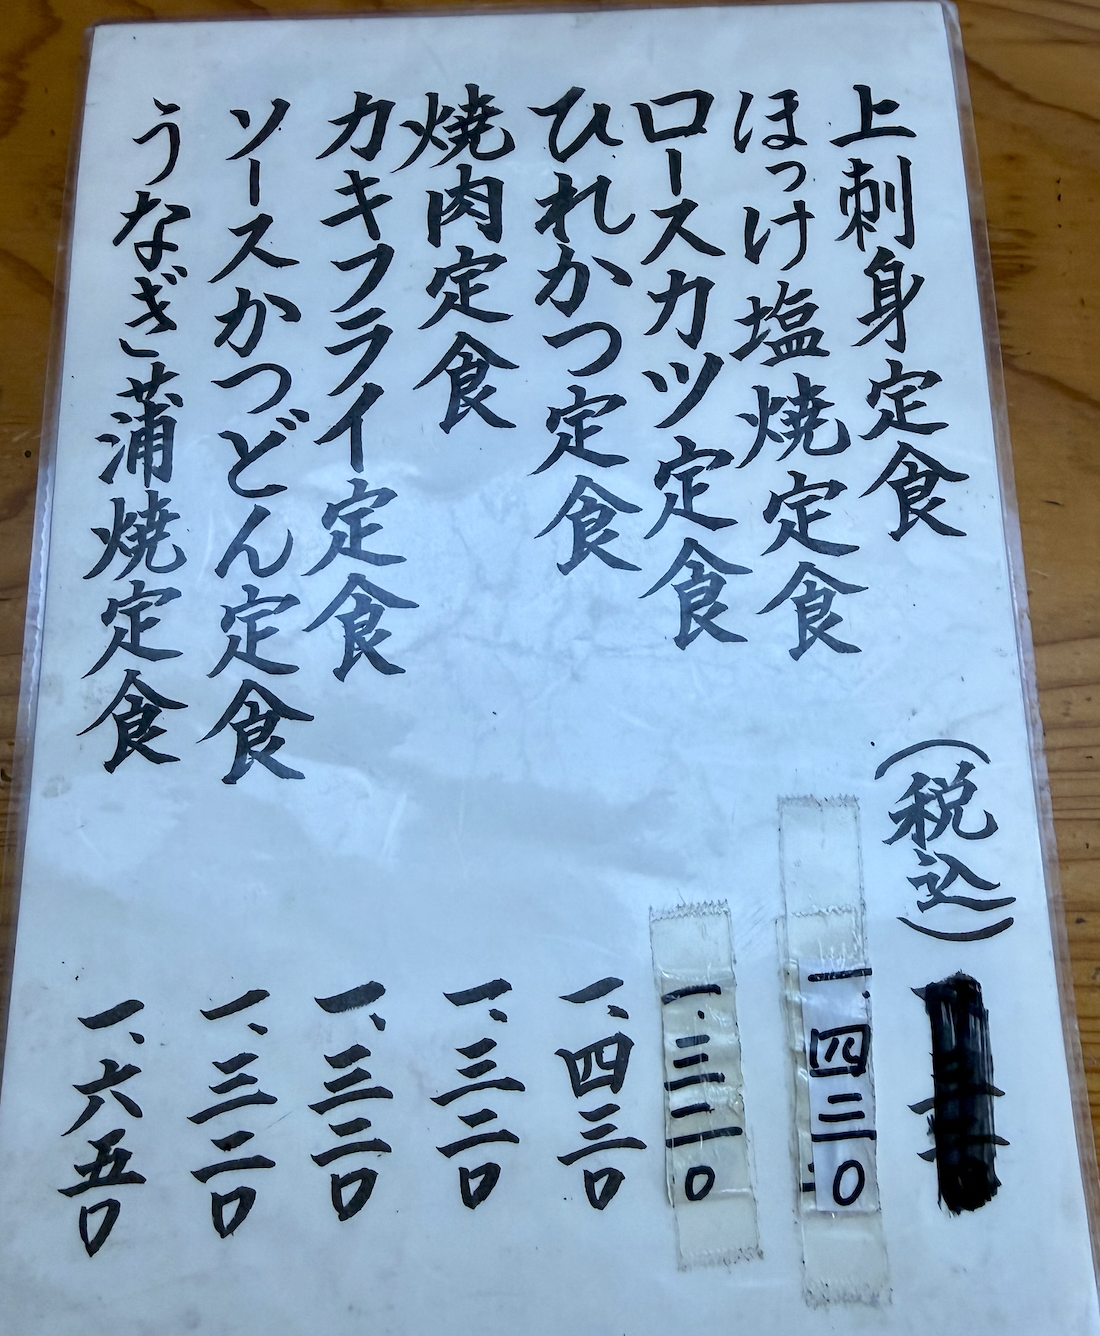 上刺身定食 (税込)
ほっけ塩焼定食 一、四三〇
ロースカツ定食 一、三二〇
ひれかつ定食 一、四三〇
焼肉定食 一、三二〇
カキフライ定食 一、三二〇
ソースかつどん定食 一、三二〇
うなぎ蒲焼定食 一、六五〇